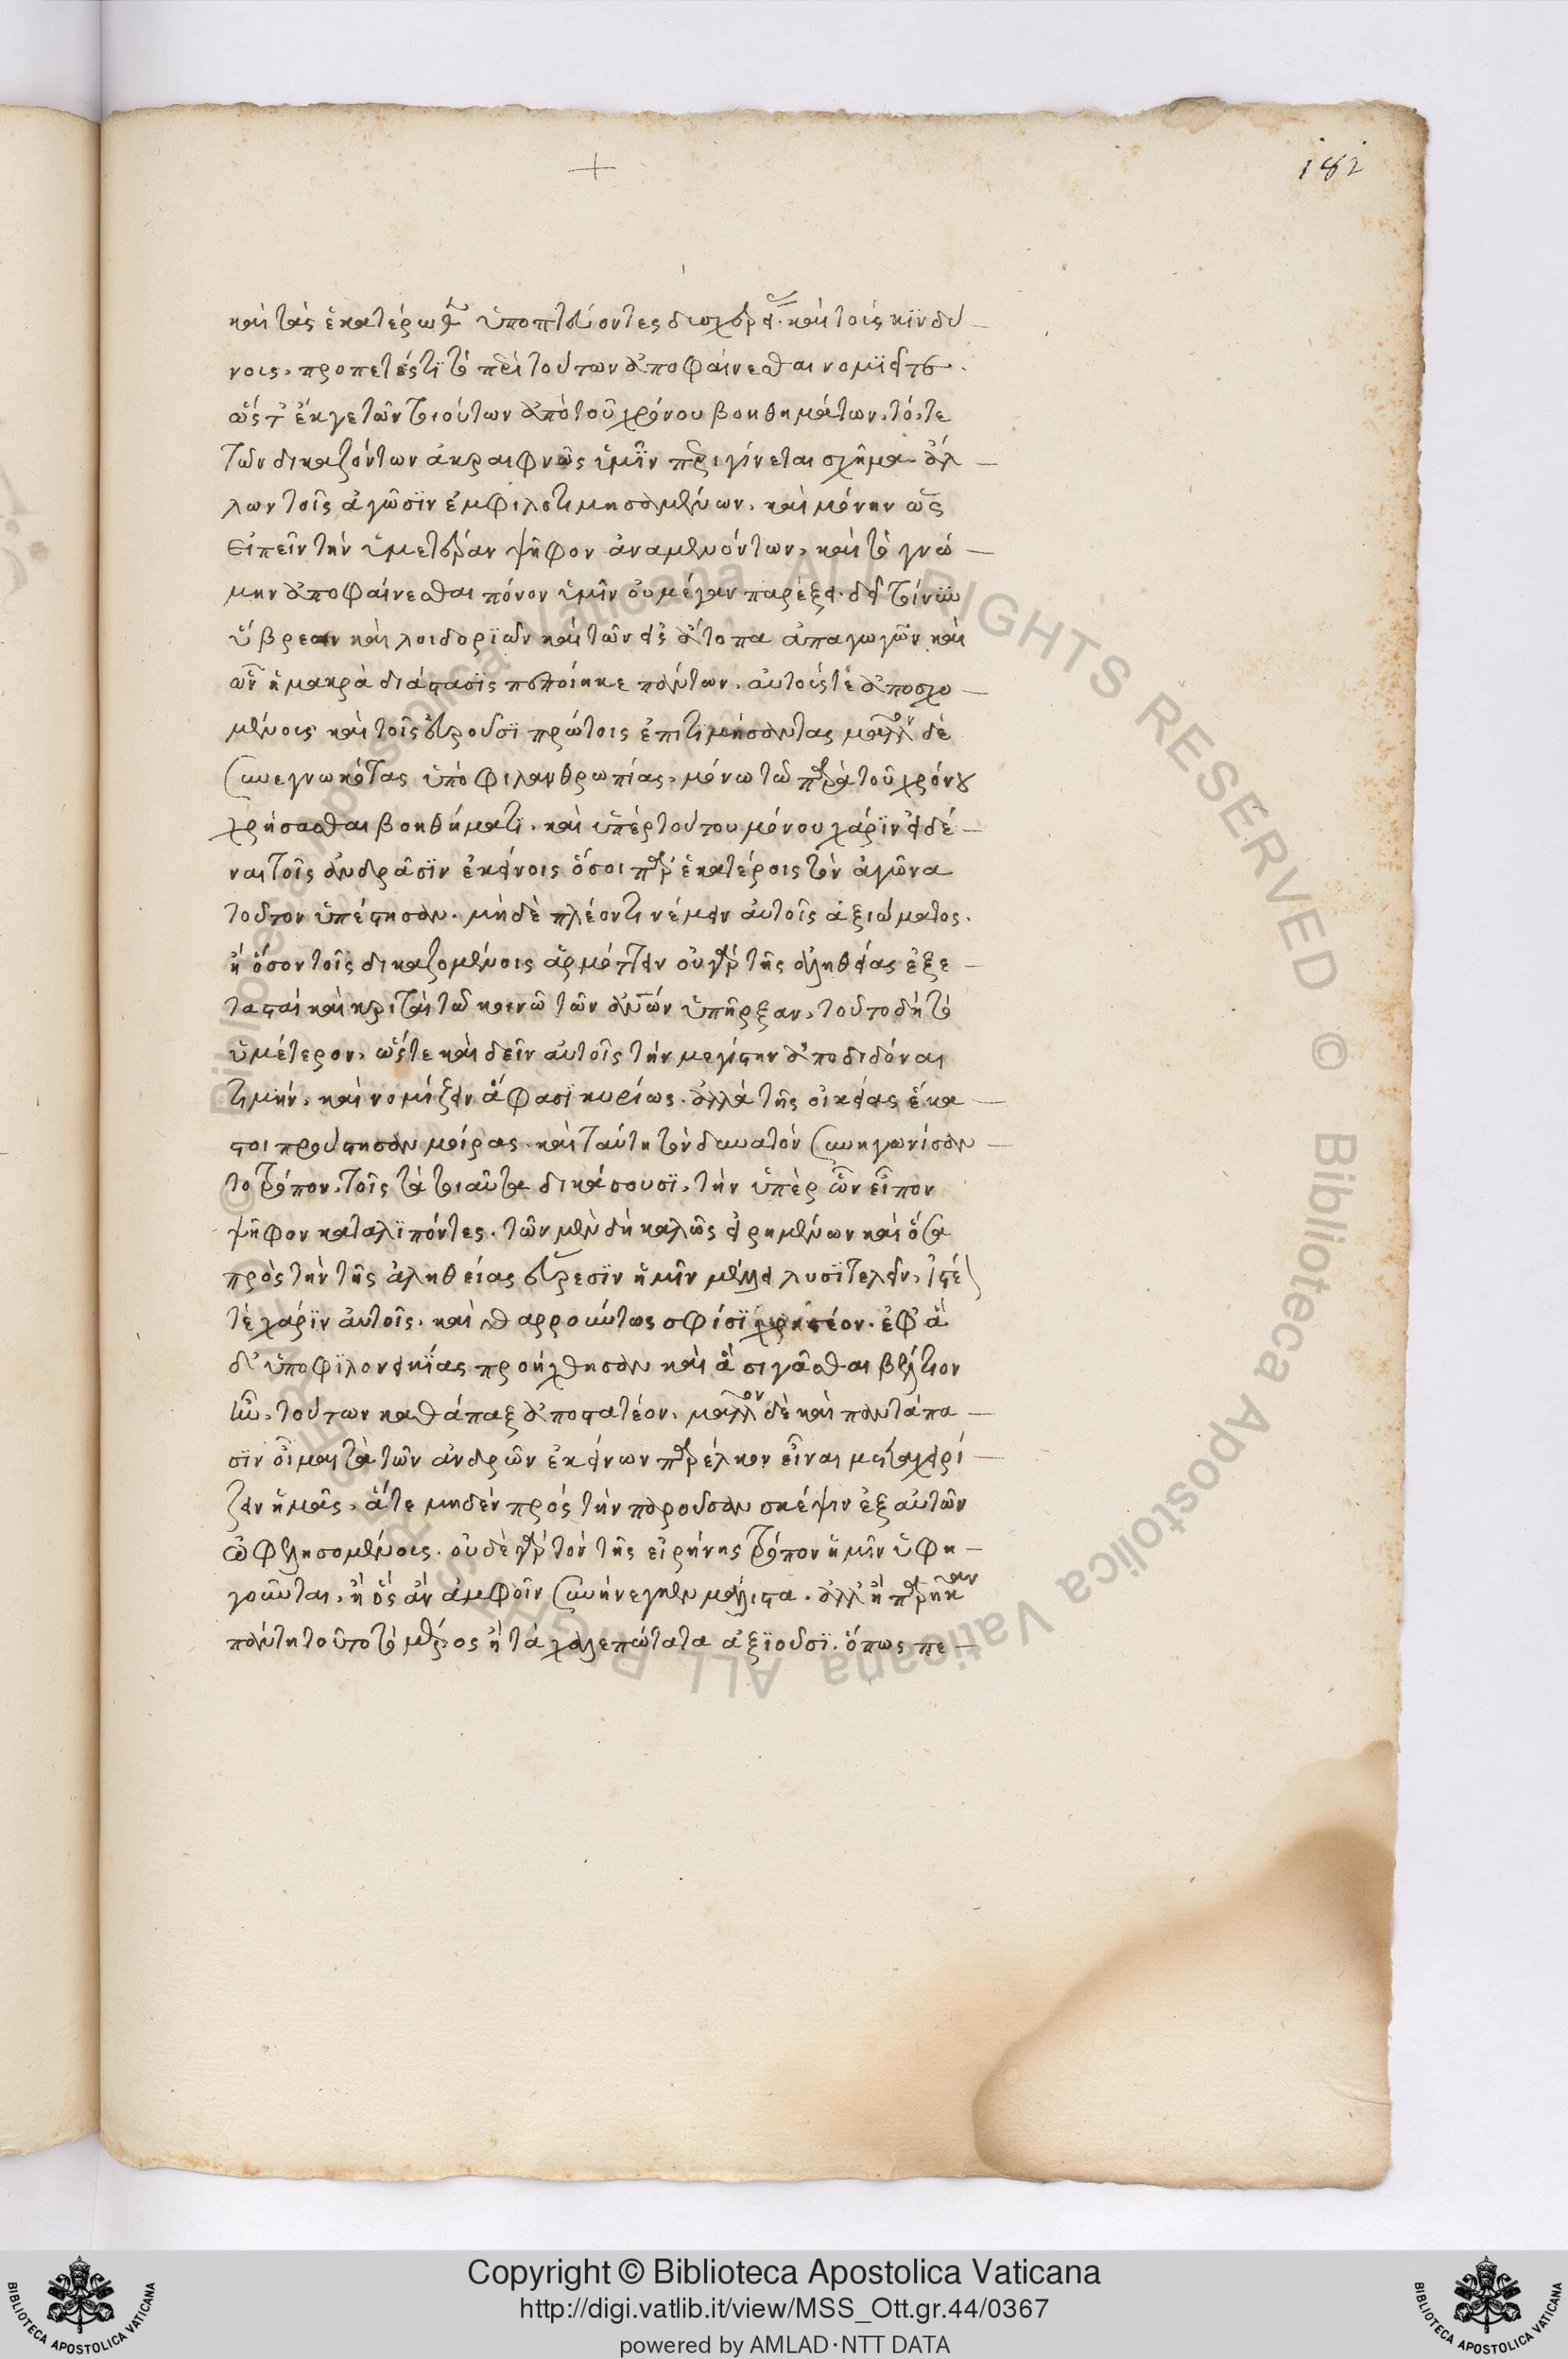 182
καὶ τὰς ἑκατέρωθεν ὑποπτεύοντες δυσχερείας καὶ τοῖς κινδύ
νοις, προπετές τι τὸ περὶ τούτων ἀποφαίνεσθαι νομιεῖτε.
ὥστ' ἔκ γε τῶν τοιούτων ἀπὸ τοῦ χρόνου βοηθημάτων, τό, τε
τῶν δικαζόντων ἀκραιφνῶς ὑμῖν περιγίνεται σχῆμα. ἄλ
λων τοῖς ἀγῶσιν ἐμφιλοτιμησαμένων, καὶ μόνην ὡς
εἰπεῖν τὴν ὑμετέραν ψῆφον ἀναμενόντων, καὶ τὸ γνώ
μην ἀποφαίνεσθαι πόνον ὑμῖν οὐ μέγαν παρέξει. δεῖ τοίνυν
ὕβρεων καὶ λοιδοριῶν καὶ τῶν εἰς ἄτοπα ἀπαγωγῶν καὶ
ὧν ἡ μακρὰ διάστασις πεποίηκε πάντων, αὐτούς τε ἀποσχο
μένους καὶ τοῖς εὑροῦσι πρώτοις ἐπιτιμήσαντας μᾶλλον δὲ
συνεγνωκότας ὑπὸ φιλανθρωπίας, μόνω τῶ παρὰ τοῦ χρόνου
χρήσασθαι βοηθήματι. καὶ ὑπὲρ τούτου μόνου χάριν εἰδέ
ναι τοῖς ἀνδράσιν ἐκείνοις ὅσοι παρ' ἑκατέροις τὸν ἀγῶνα
τοῦτον ὑπέστησαν. μηδὲ πλέον τι νέμειν αὐτοῖς ἀξιώματος.
ἢ ὅσον τοῖς δικαζομένοις ἁρμόττειν οὐ γὰρ τῆς ἀληθείας ἐξε
τασταὶ καὶ κριταὶ τῶ κοινῶ τῶν ἀνθρώπων ὑπῆρξαν, τοῦτο δὴ τὸ
ὑμέτερον, ὥστε καὶ δεῖν αὐτοῖς τὴν μεγίστην ἀποδιδόναι
τιμὴν, καὶ νομίζειν ἅ φασι κυρίως. ἀλλὰ τῆς οἰκείας ἕκα
στοι προύστησαν μοίρας. καὶ ταύτη τὸν δυνατὸν συνηγωνίσαν
το τρόπον, τοῖς τὰ τοιαῦτα δικάσουσι, τὴν ὑπὲρ ὧν εἶπον
ψῆφον καταλιπόντες. τῶν μὲν δὴ καλῶς εἰρημένων καὶ ὅσα
πρὸς τὴν τῆς ἀληθείας εὕρεσιν ἡμῖν μέλλει λυσιτελεῖν, ἰστέ
τε χάριν αὐτοῖς. καὶ θαρρούντως σφίσι χρηστέον. ἐφ' ἃ
δ' ὑπὸ φιλονεικίας προήχθησαν καὶ ἃ σιγᾶσθαι βέλτιον
ἦν, τούτων καθάπαξ ἀποστατέον. μᾶλλον δὲ καὶ παντάπα
σιν οἶμαι τὰ τῶν ἀνδρῶν ἐκείνων παρέλκον εἶναι μεταχειρί
ζειν ἡμᾶς, ἅτε μηδὲν πρὸς τὴν παροῦσαν σκέψιν ἐξ αὐτῶν
ὠφελησομένοις. οὐδὲ γὰρ τὸν τῆς εἰρήνης τρόπον ἡμῖν ὑφη
γοῦνται, ἢ ὃς ἂν ἀμφοῖν συνήνεγκεν μάλιστα. ἀλλ' ἢ παρῆκαν
πάντη τοῦτο τὸ μέρος ἢ τὰ χαλεπώτατα ἀξιοῦσι. ὅπως πε
Copyright © Biblioteca Apostolica Vaticana
http://digi.vatlib.it/view/MSS_Ott.gr.44/0367
powered by AMLAD·NTT DATA